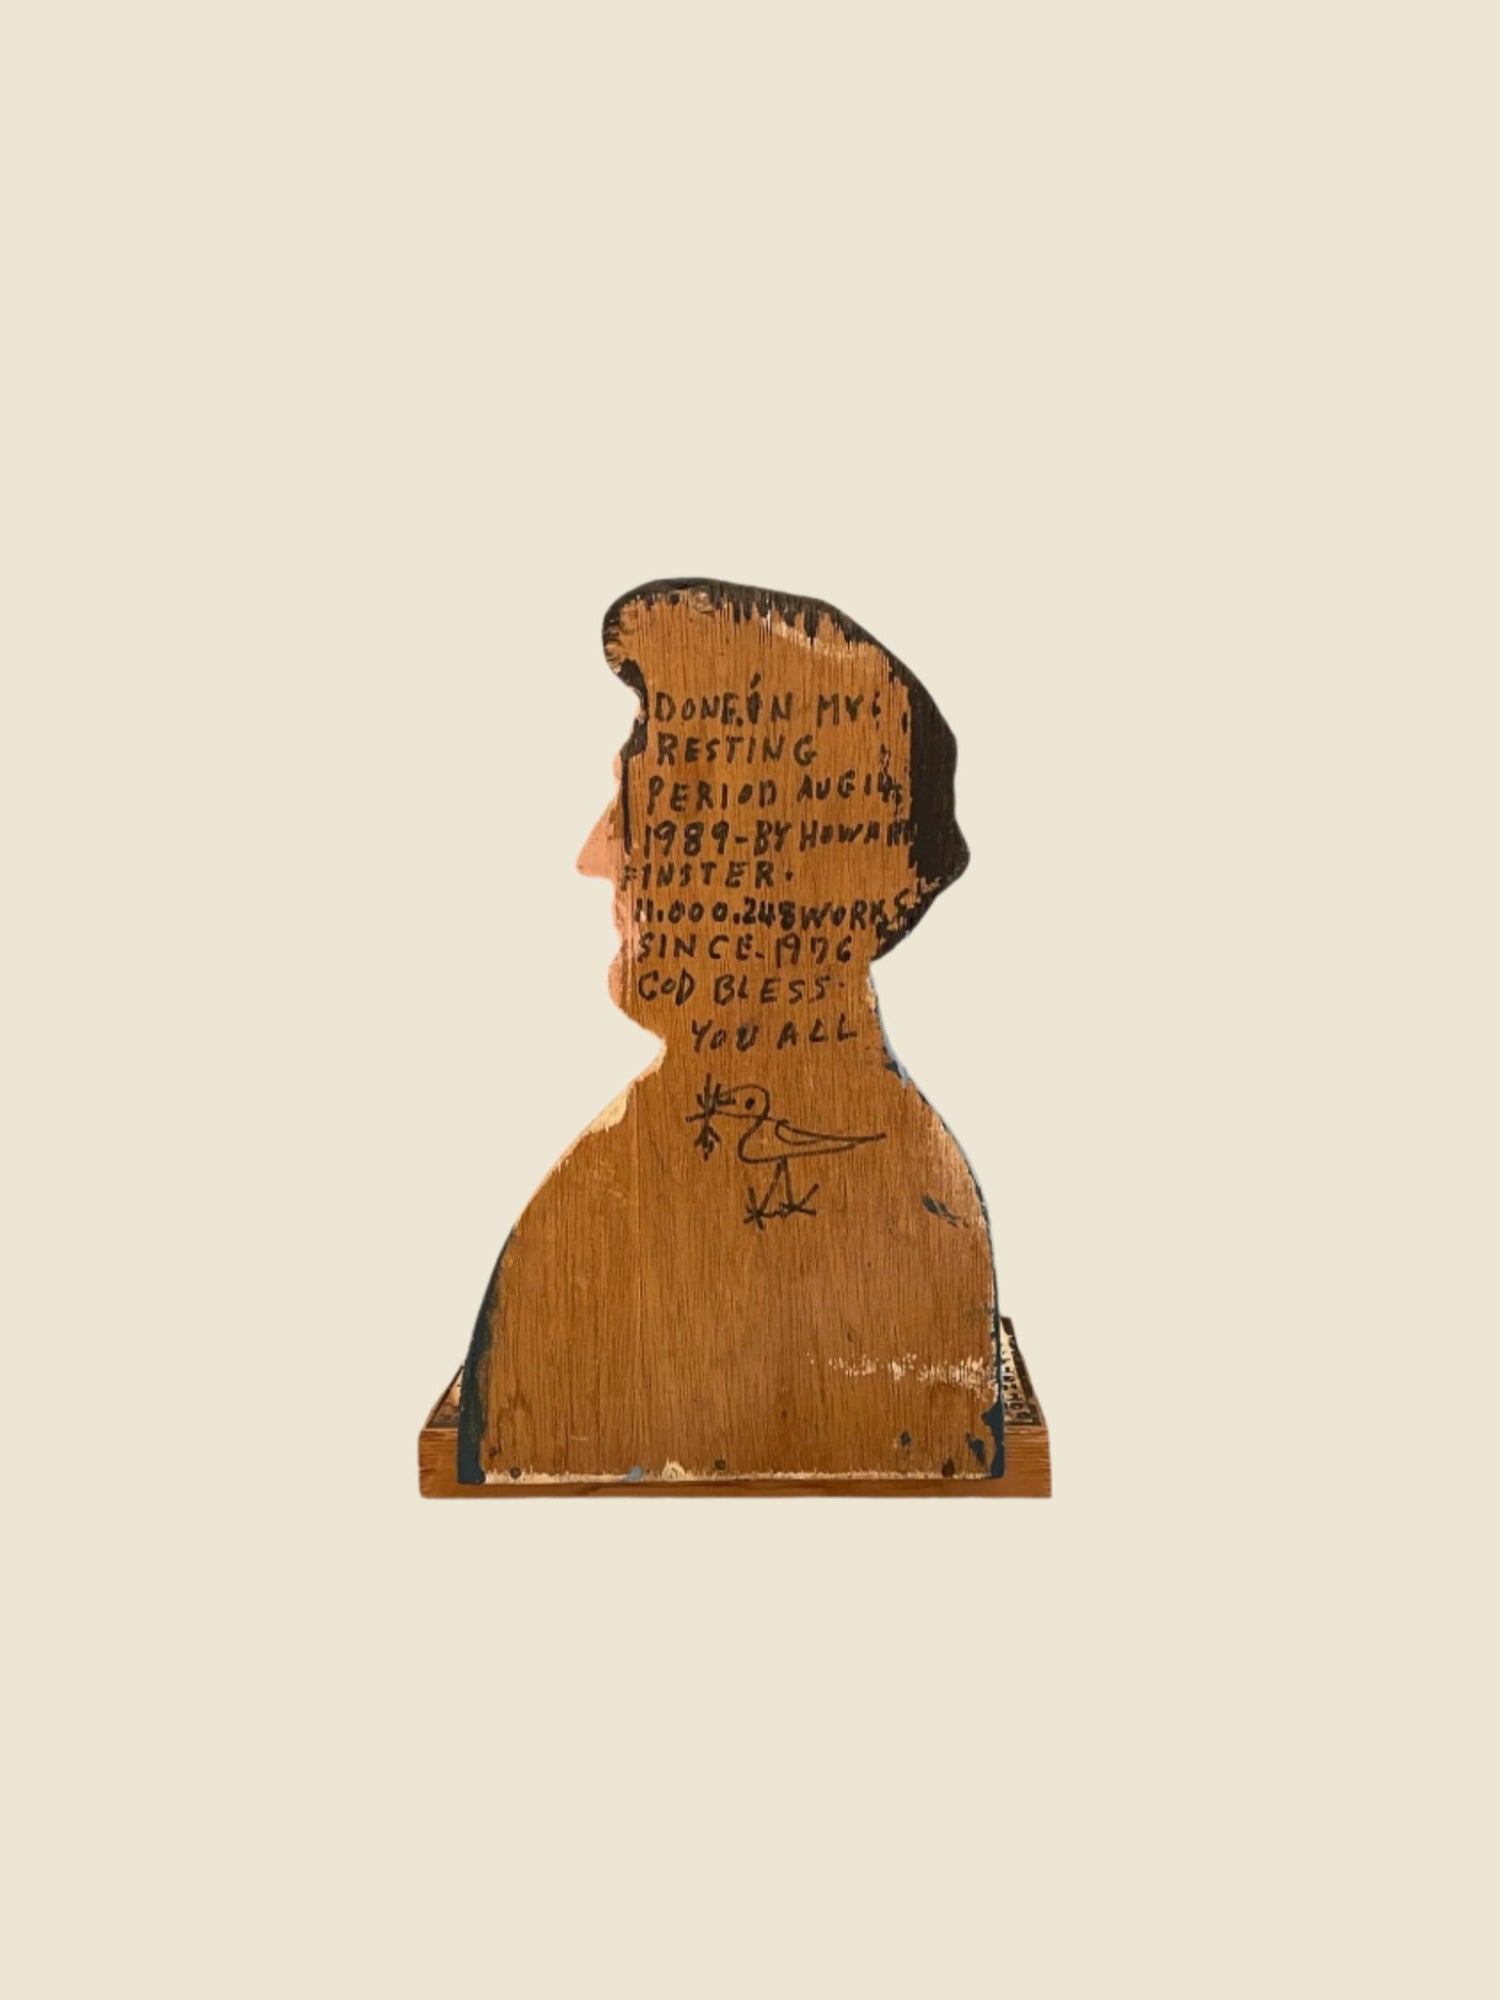 DONE. IN MY
RESTING
PERIOD AUG 14
1989-BY HOWARD
FINSTER.
11.000.248 WORKS
SINCE. 1976
GOD BLESS.
YOU ALL